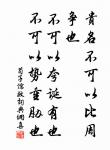 貴名不可以比周
爭也
不可以夸誕有也
不可以勢重脅也
荀子儒效句典網集